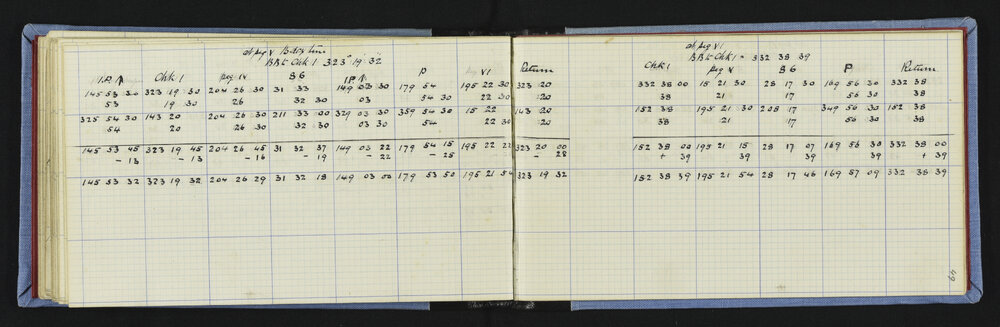 at peg V
BB to Chk 1 323 19 32
I.P. Chk 1 peg IV S6 I.P. P VI Return
145 53 30 323 19 30 204 26 30 31 33 149 03 30 179 54 195 22 30 323 20
53 19 30 26 32 30 03 54 30 22 30 20
325 54 30 143 20 204 26 30 211 33 00 329 03 30 359 54 30 15 22 143 20
54 20 26 30 32 30 03 30 54 22 30 20
145 53 45 323 19 45 204 26 45 31 32 37 149 03 22 179 54 15 195 22 22 323 20 00
- 13 - 13 - 16 - 19 - 22 - 25 - 28
145 53 32 323 19 32 204 26 29 31 32 18 149 03 00 179 53 50 195 21 54 323 19 32
at peg VI
BB to Chk 1 = 332 38 39
Chk 1 peg V S6 P Return
332 38 00 15 21 30 28 17 30 169 56 30 332 38
38 21 17 56 30 38
152 38 195 21 30 208 17 349 56 30 152 38
38 21 17 56 30 38
152 38 00 195 21 15 28 17 07 169 56 30 332 38 00
+ 39 39 39 39 + 39
152 38 39 195 21 54 28 17 46 169 57 09 332 38 39
49